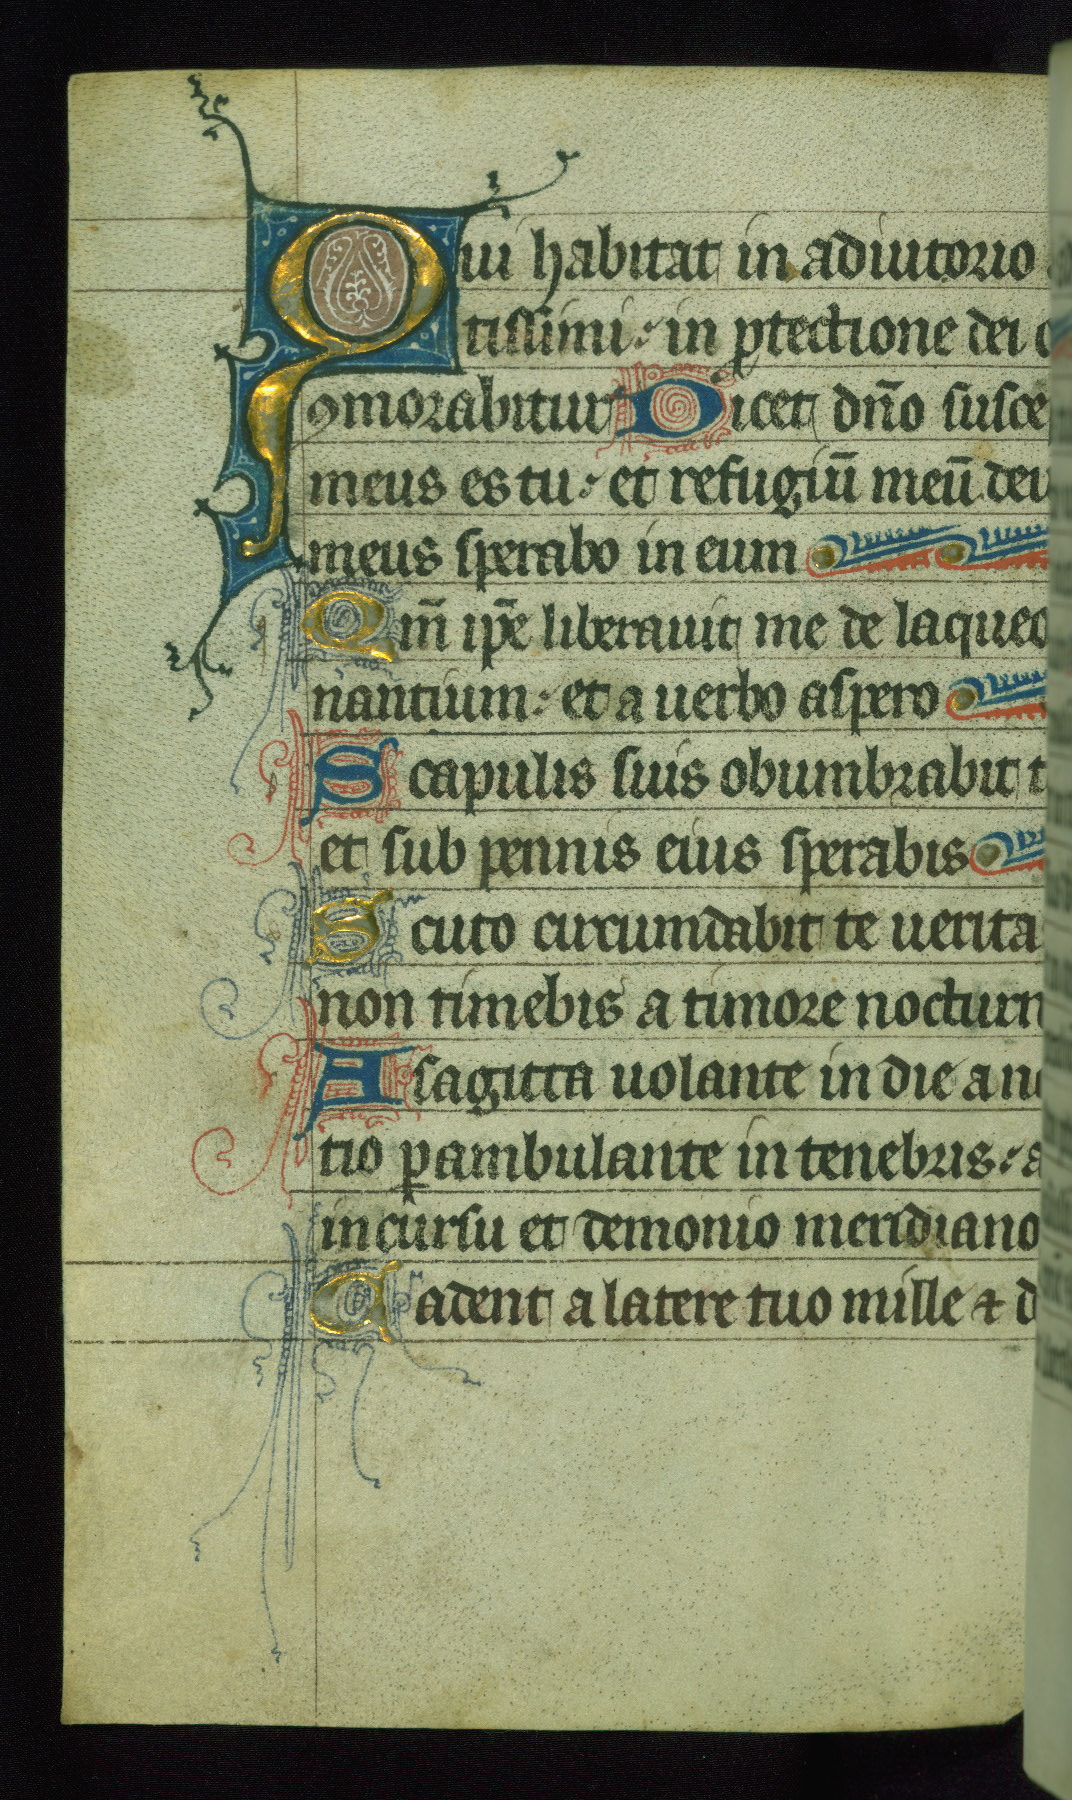 Qui habitat in adiutorio
tissimi: in ꝓtectione dei
ꝯmorabitur Dicet dn̄o susce
meus es tu: et refugiū meū deu
meus sperabo in eum
Qm̄ ip̄e liberauit me de laqueo
nantium: et a uerbo aspero
Scapulis suis obumbrabit t
et sub pennis eius sperabis
Scuto circumdabit te uerita
non timebis a timore nocturn
A sagitta uolante in die a ne
tio ꝑambulante in tenebris: a
incursu et demonio meridiano
Cadent a latere tuo mille ⁊ d